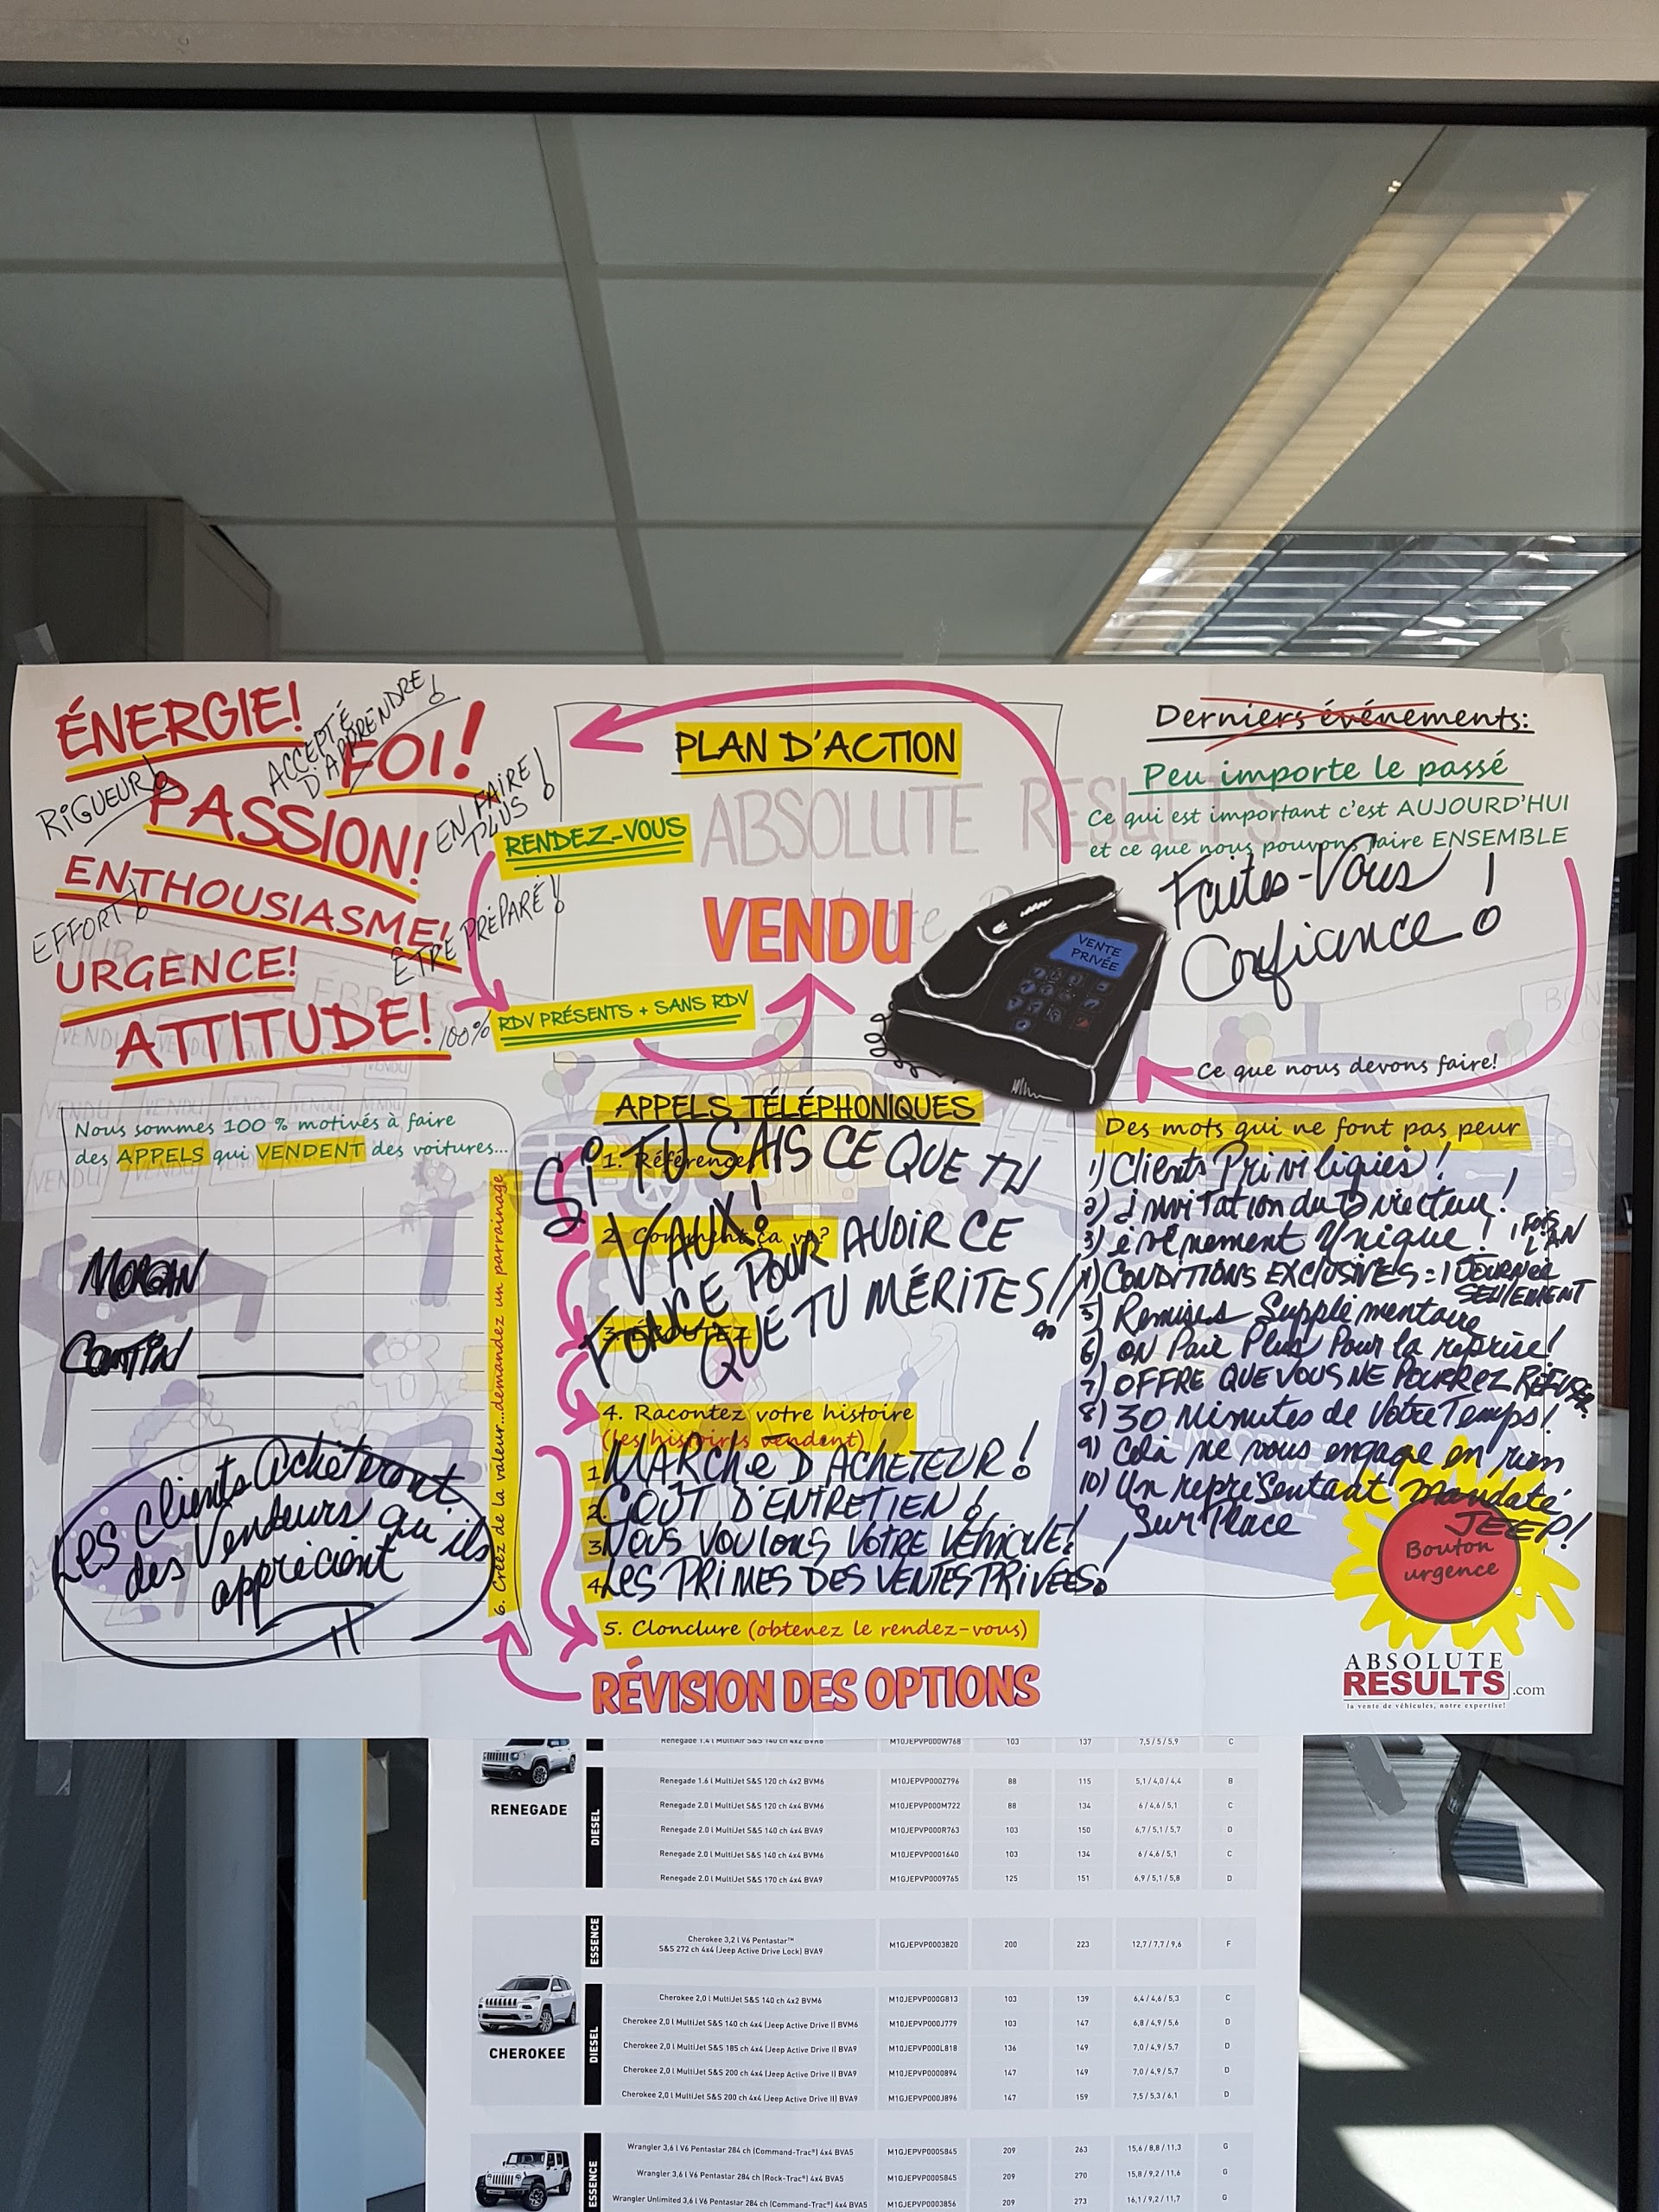 ÉNERGIE!
ACCEPTÉ
D'APPRENDRE!
FOI!
RIGUEUR!
PASSION!
EN FAIRE
PLUS!
ENTHOUSIASME!
EFFORT!
ÊTRE PRÉPARÉ!
URGENCE!
ATTITUDE!
100%
PLAN D'ACTION
ABSOLUTE RESULTS
RENDEZ-VOUS
VENDU
VENTE
PRIVÉE
RDV PRÉSENTS + SANS RDV
Derniers événements:
Peu importe le passé
Ce qui est important c'est AUJOURD'HUI
et ce que nous pouvons faire ENSEMBLE
Faites-Vous
Confiance!
Ce que nous devons faire!
Nous sommes 100 % motivés à faire
des APPELS qui VENDENT des voitures...
MORGAN
Les Clients Achèteront
des Vendeurs qu'ils
apprécient
6. Créez de la valeur...demandez un parrainage
APPELS TÉLÉPHONIQUES
1. Référence
2. Comment ça va?
3. ÉCOUTEZ
SI TU SAIS CE QUE TU
VAUX!
FONCE POUR AVOIR CE
QUE TU MÉRITES!
4. Racontez votre histoire
(les histoires vendent)
1 MARCHE D'ACHETEUR!
2. COÛT D'ENTRETIEN!
3 Nous Voulons Votre Véhicule!
4. Les PRIMES DES VENTES PRIVÉES!
5. Clonclure (obtenez le rendez-vous)
RÉVISION DES OPTIONS
Des mots qui ne font pas peur
1) Clients Priviligiés!
2) invitation du Directeur!
3) évènement Unique! 1 FOIS
L'AN
4) CONDITIONS EXCLUSIVES = 1 JOURNÉE
SEULEMENT
5) Remises Supplémentaire
6) ON Paie Plus Pour la reprise!
7) OFFRE QUE VOUS NE POURREZ REFUSER
8) 30 Minutes de Votre Temps!
9) Celà ne vous engage en rien
10) Un représentant mandaté
Sur Place JEEP!
Bouton
urgence
ABSOLUTE
RESULTS.com
la vente de véhicules, notre expertise!
Renegade 1.4 l MultiAir S&S 140 ch 4x2 BVR6 M10JEPVP000W768 103 137 7,5/5/5,9 C
RENEGADE
DIESEL
Renegade 1.6 l MultiJet S&S 120 ch 4x2 BVM6 M10JEPVP000Z796 88 115 5,1/4,0/4,4 B
Renegade 2.0 l MultiJet S&S 120 ch 4x4 BVM6 M10JEPVP000M722 88 134 6/4,6/5,1 C
Renegade 2.0 l MultiJet S&S 140 ch 4x4 BVA9 M10JEPVP000R763 103 150 6,7/5,1/5,7 D
Renegade 2.0 l MultiJet S&S 140 ch 4x4 BVM6 M10JEPVP0001640 103 134 6/4,6/5,1 C
Renegade 2.0 l MultiJet S&S 170 ch 4x4 BVA9 M1GJEPVP0009765 125 151 6,9/5,1/5,8 D
CHEROKEE
ESSENCE
Cherokee 3,2 l V6 Pentastar™
S&S 272 ch 4x4 (Jeep Active Drive Lock) BVA9 M1GJEPVP0003820 200 223 12,7/7,7/9,6 F
DIESEL
Cherokee 2,0 l MultiJet S&S 140 ch 4x2 BVM6 M10JEPVP000G813 103 139 6,4/4,6/5,3 C
Cherokee 2,0 l MultiJet S&S 140 ch 4x4 (Jeep Active Drive I) BVM6 M10JEPVP000J779 103 147 6,8/4,9/5,6 D
Cherokee 2,0 l MultiJet S&S 185 ch 4x4 (Jeep Active Drive I) BVA9 M10JEPVP000L818 136 149 7,0/4,9/5,7 D
Cherokee 2,0 l MultiJet S&S 200 ch 4x4 (Jeep Active Drive I) BVA9 M10JEPVP0000894 147 149 7,0/4,9/5,7 D
Cherokee 2,0 l MultiJet S&S 200 ch 4x4 (Jeep Active Drive II) BVA9 M1GJEPVP000J896 147 159 7,5/5,3/6,1 D
ESSENCE
Wrangler 3,6 l V6 Pentastar 284 ch (Command-Trac®) 4x4 BVA5 M1GJEPVP000S845 209 263 15,6/8,8/11,3 G
Wrangler 3,6 l V6 Pentastar 284 ch (Rock-Trac®) 4x4 BVA5 M1GJEPVP000S845 209 270 15,8/9,2/11,6 G
Wrangler Unlimited 3,6 l V6 Pentastar 284 ch (Command-Trac®) 4x4 BVA5 M1GJEPVP0003856 209 273 16,1/9,2/11,7 G